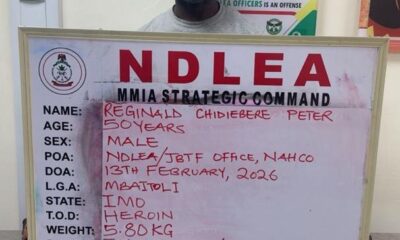 OFFICERS IS AN OFFENSE
NDLEA
MMIA STRATEGIC COMMAND
NAME: REGINALD CHIDIEBERE PETER
AGE: 50 YEARS
SEX: MALE
POA: NDLEA/JBTF OFFICE, NAHCO
DOA: 13TH FEBRUARY, 2026
L.G.A: MBAITOLI
STATE: IMO
T.O.D: HEROIN
WEIGHT: 5.80KG